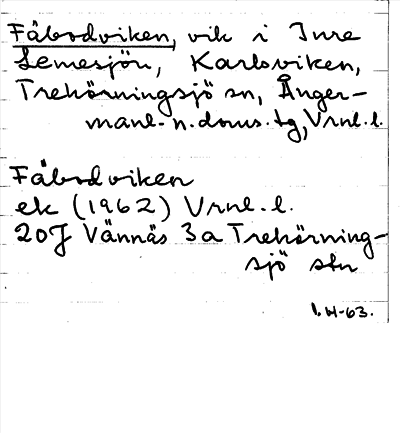 Fäbodviken, vik i Inre
Lemesjön, Karlsviken,
Trehörningsjö sn, Ånger-
manl. n. doms. tg, Vrnl. l.
Fäbodviken
ek (1962) Vrnl. l.
20J Vännäs 3a Trehörning-
sjö stn